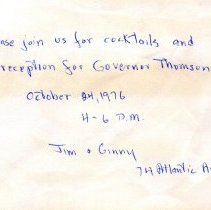 ase join us for cocktails and
reception for Governor Thomson
October 24, 1976
4-6 P.M.
Jim & Ginny
74 Atlantic A